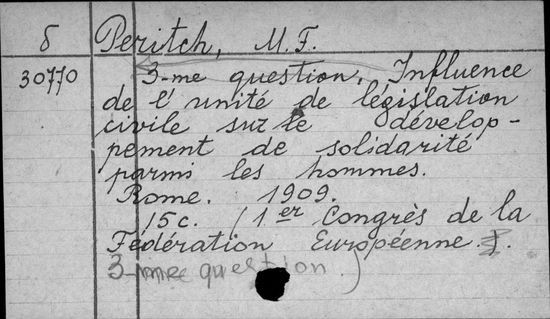 б Peritch, M.F.
30770 3-me question, Influence
de l'unité de législation
civile sur le dévelop-
pement de solidarité
parmi les hommes.
Rome. 1909.
15c. (1er Congrès de la
Fédération Européenne.).
3-me question.)